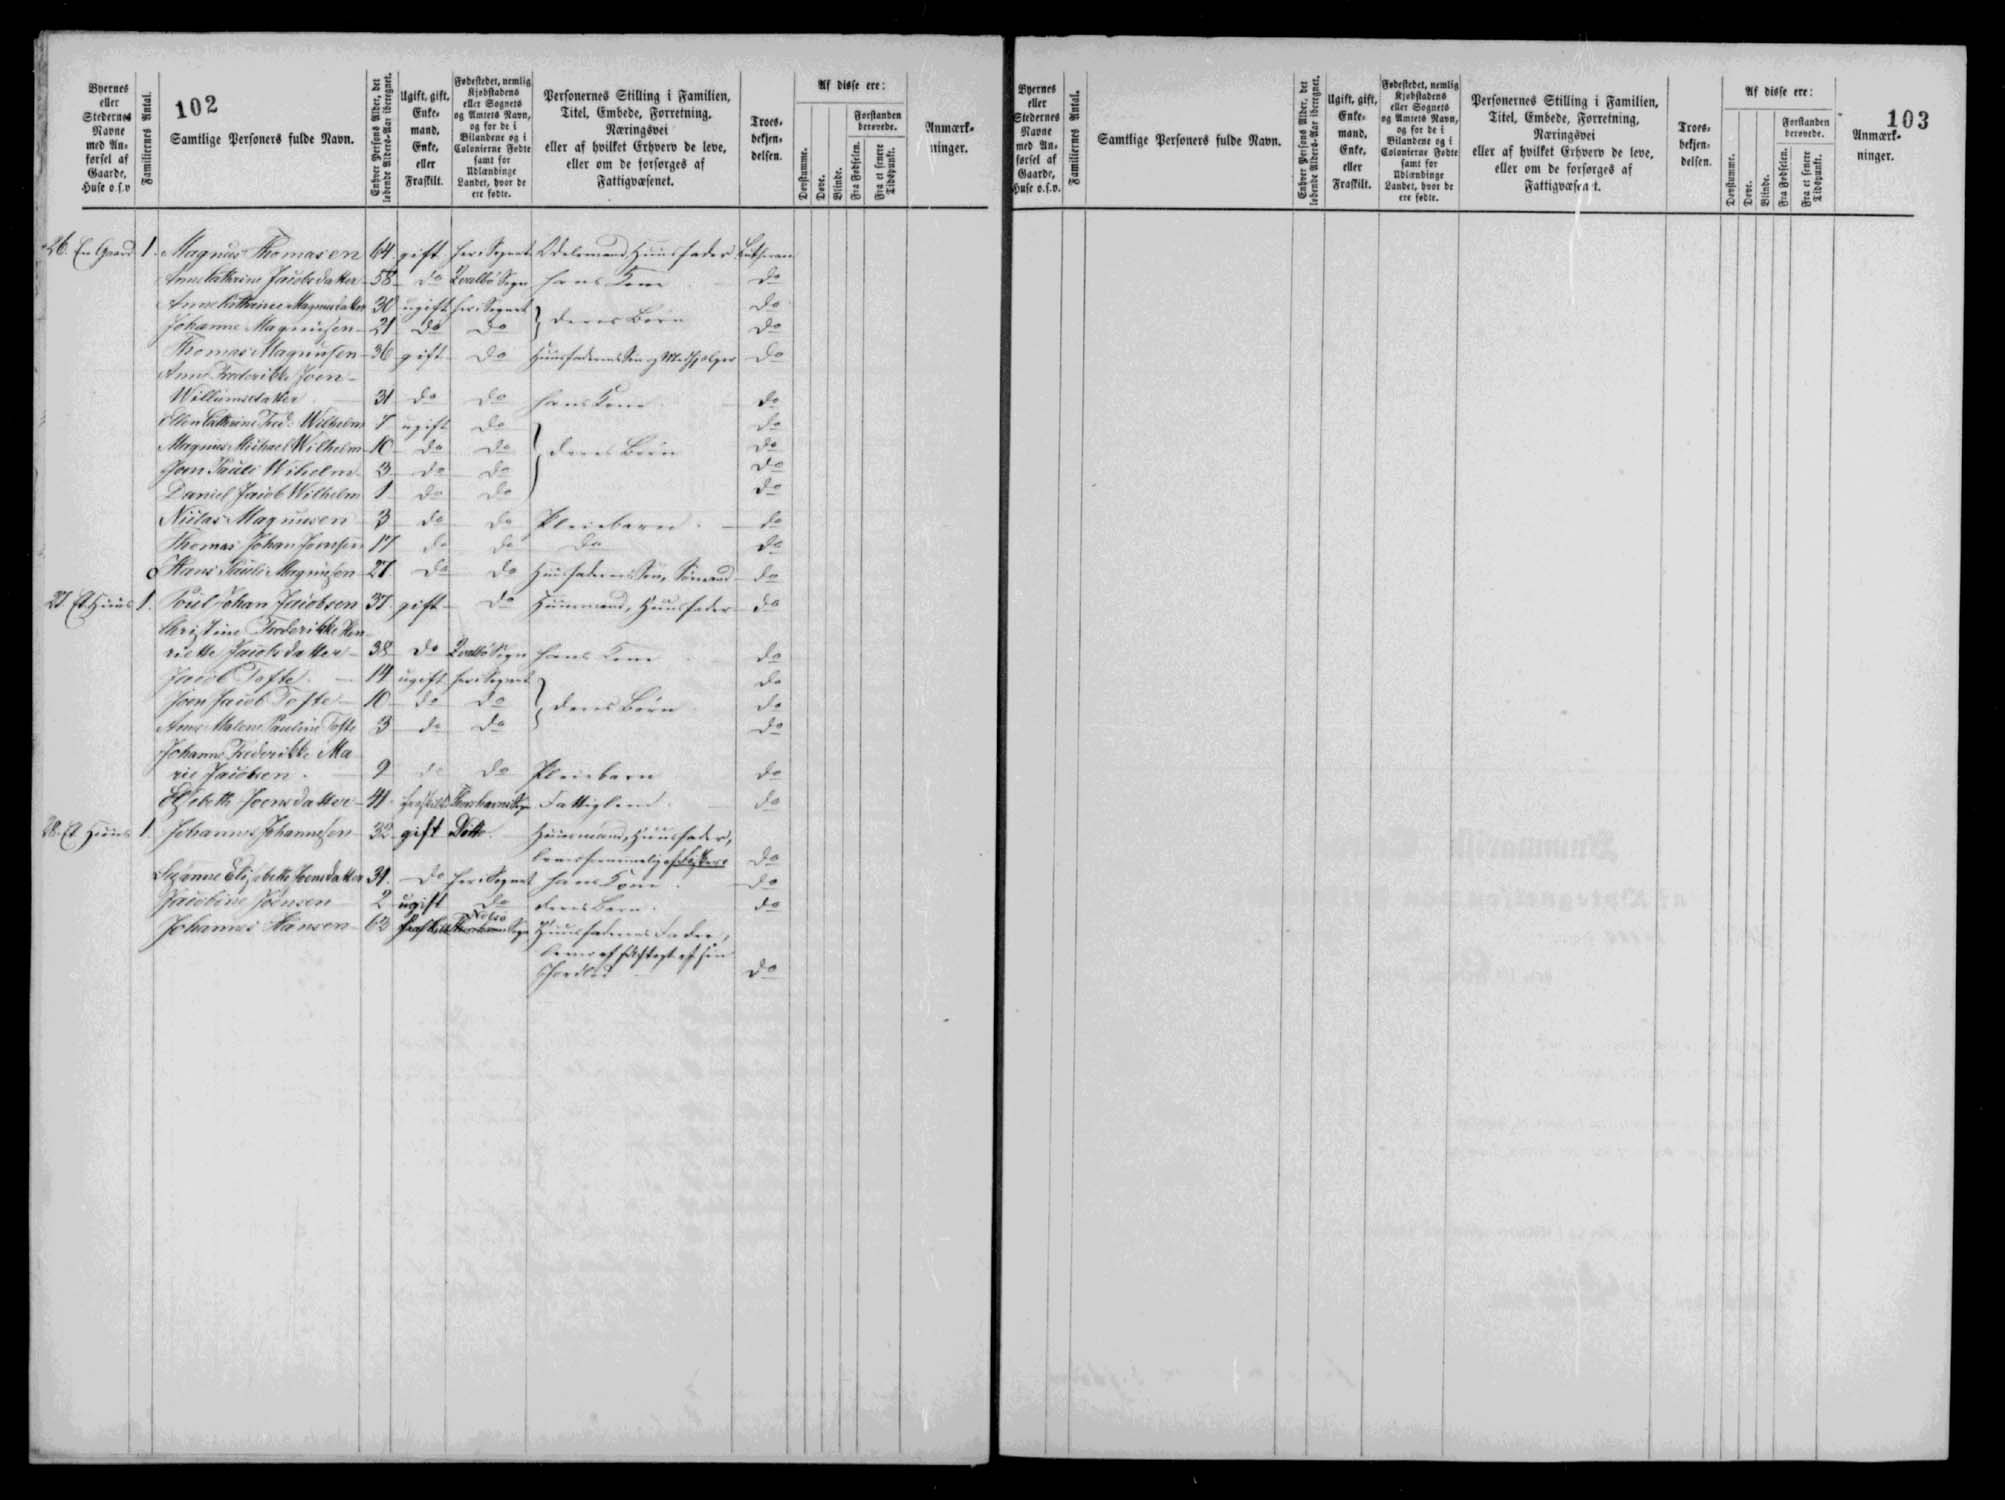 Byernes
eller
Stedernes
Navne
med An-
førsel af
Gaarde,
Huse o.s.v
Familiernes Antal.
102
Samtlige Personers fulde Navn.
Enhver Persons Alder, det
løbende Alders-Aar iberegnet.
Ugift, gift,
Enke-
mand,
Enke,
eller
Fraskilt.
Fødestedet, nemlig
Kjøbstadens
eller Sognets
og Amtets Navn,
og for de i
Bilandene og i
Colonierne Fødte
samt for
Udlændinge
Landet, hvor de
ere fødte.
Personernes Stilling i Familien,
Titel, Embede, Forretning,
Næringsvei
eller af hvilket Erhverv de leve,
eller om de forsørges af
Fattigvæsenet.
Troes-
bekjen-
delsen.
Af disse ere:
Døvstumme.
Døve.
Blinde.
Forstanden
berøvede.
Fra Fødselen.
Fra et senere
Tidspunkt.
Anmærk-
ninger.
26. En Gaard 1. Magnus Thomasen 64 gift her i Sognet Odelsmand, Huusfader Luthersan
Anne Cathrine Jacobsdatter 58 do Qvalbø Sogn hans Kone do
Anne Kathrine Magnusdatter 30 ugift her i Sognet do
Johanne Magnusen 21 do do } deres Børn do
Thomas Magnusen 36 gift do Huusfaderens Søn og Medhjælper do
Anne Frederikke Joen-
Willumsdatter 31 do do hans Kone do
Ellen Cathrine Fred. Wilhelm 7 ugift do do
Magnus Michael Wilhelm 10 do do } deres Børn do
Joen Pauli Wihelm 3 do do do
Daniel Jacob Wilhelm 1 do do do
Niclas Magnusen 3 do do Pleiebarn do
Thomas Johan Joensen 17 do do do do
Hans Pauli Magnusen 27 do do Huusfaderens Søn, Sømand do
27 Et Huus 1. Poul Johan Jacobsen 37 gift do Huusmand, Huusfader do
Christine Frederikke Hen-
riette Jacobsdatter 38 do Qvalbø Sogn hans Kone do
Jacob Tofte 14 ugift her i Sognet do
Joen Jacob Tofte 10 do do } deres Børn do
Anne Malene Pauline Tofte 3 do do do
Johanne Frederikke Ma-
rie Jacobsen 9 do do Pleiebarn do
Elsebeth Joensdatter 41 fraskilt Thorshavns Sogn Fattiglem do
28. Et Huus 1 Johannes Johannesen 32 gift Ditto Huusmand, Huusfader,
lever fornemmelig af Fiskeri do
Susanne Elisabeth Joensdatter 31 do her i Sognet hans Kone do
Jacobine Joensen 2 ugift do deres Barn do
Johannes Hansen 62 fraskilt Nolsø Sogn Huusfaderens Fader,
lever af
Jordlod do
Byernes
eller
Stedernes
Navne
med An-
førsel af
Gaarde,
Huse o.s.v.
Familiernes Antal.
Samtlige Personers fulde Navn.
Enhver Persons Alder, det
løbende Alders-Aar iberegnet.
Ugift, gift,
Enke-
mand,
Enke,
eller
Fraskilt.
Fødestedet, nemlig
Kjøbstadens
eller Sognets
og Amtets Navn,
og for de i
Bilandene og i
Colonierne Fødte
samt for
Udlændinge
Landet, hvor de
ere fødte.
Personernes Stilling i Familien,
Titel, Embede, Forretning,
Næringsvei
eller af hvilket Erhverv de leve,
eller om de forsørges af
Fattigvæsenet.
Troes-
bekjen-
delsen.
Af disse ere:
Døvstumme.
Døve.
Blinde.
Forstanden
berøvede.
Fra Fødselen.
Fra et senere
Tidspunkt.
Anmærk-
ninger.
103